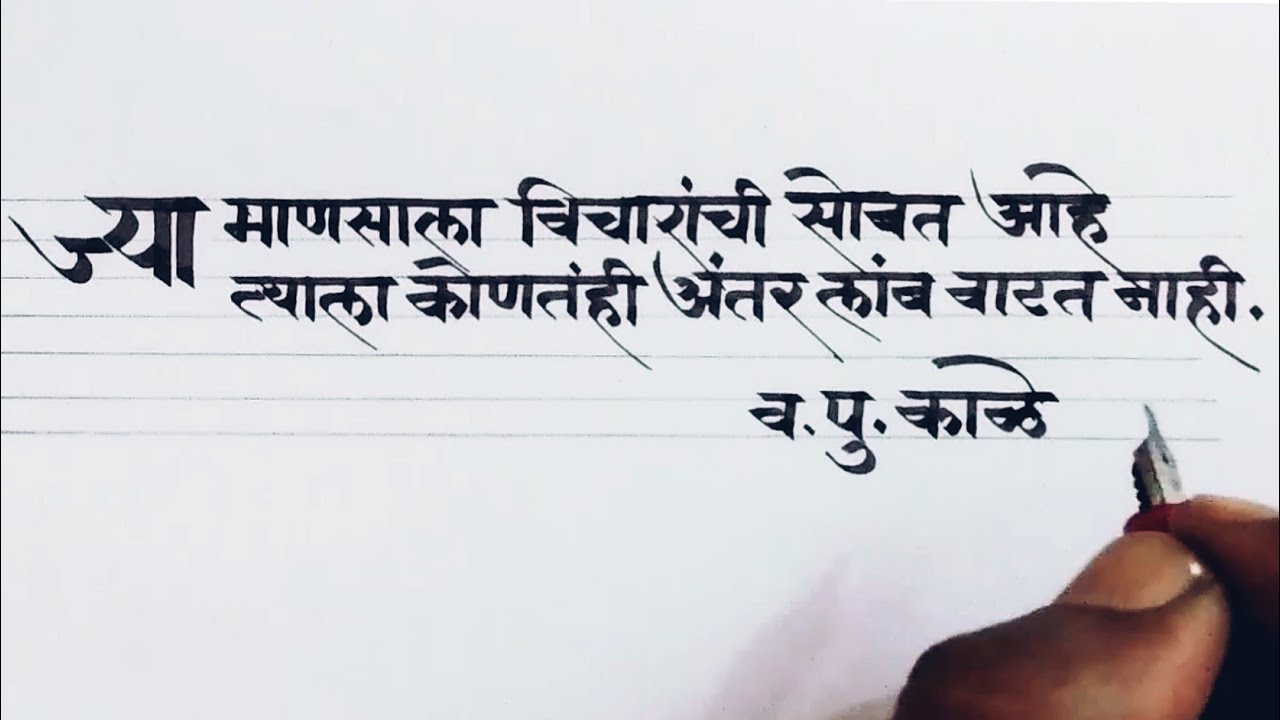 ज्या माणसाला विचारांची सोबत आहे
त्याला कोणतंही अंतर लांब वाटत नाही.
व. पु. काळे